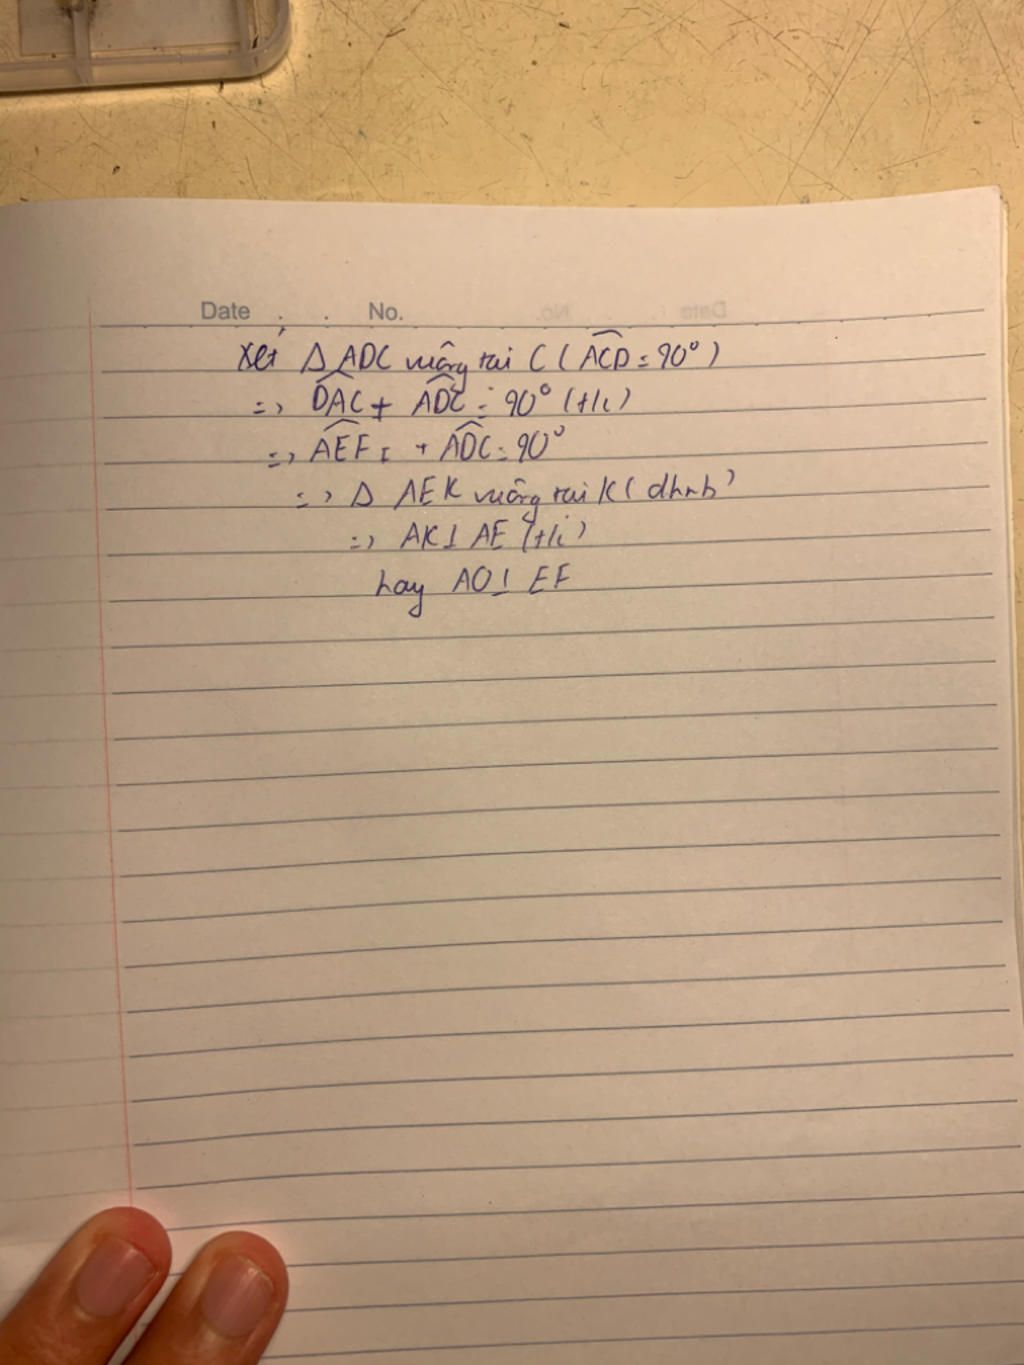 Date . . No.
Xét Δ ADC vuông tại C ( ACD = 90° )
=> DAC + ADC = 90° (t/c)
=> AEF + ADC = 90°
=> Δ AEK vuông tại K ( dhnb )
=> AK ⊥ AE (t/c)
hay AO ⊥ EF